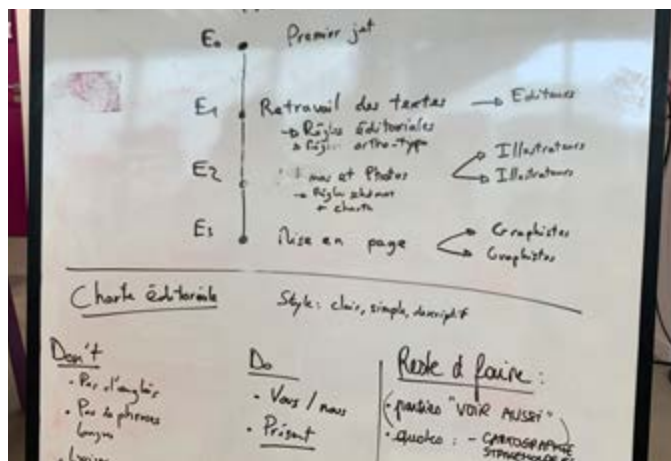 E0 Premier jet
E1 Retravail des textes → Editeurs
→ Règles éditoriales
→ Règles ortho-typo
E2 et Photos Illustrateurs
Illustrateurs
→ Règles schémas
+ charte
E3 Mise en page Graphistes
Graphistes
Charte éditoriale Style: clair, simple, descriptif
Don't
• Pas d'anglais
• Pas de phrases
longues
Do
• Vous / nous
• Présent
Reste à faire :
(• parties "VOIR AUSSI")
• quotes : - CARTOGRAPHIE
STAKEHOLDERS